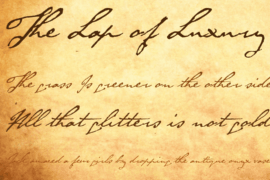 The Lap of Luxury
The grass Is greener on the other side
All that glitters is not gold
a few girls by dropping the antique onyx case